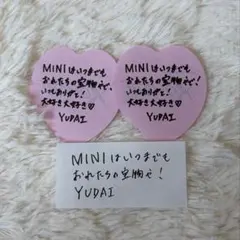 MINIはいつまでも
おれたちの宝物で、
いつもありがと!
大好き大好き♡
YUDAI
MINIはいつまでも
おれたちの宝物で、
いつもありがと!
大好き大好き♡
YUDAI
MINIはいつまでも
おれたちの宝物で!
YUDAI